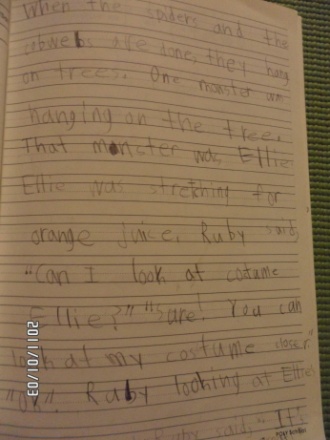 When the spiders and the
cobwebs are done, they hang
on trees. One monster am
hanging on the tree.
That monster was Ellie
Ellie was streching for
orange juice. Ruby said,
"Can I look at cotume
Ellie?" "Sure! You can
look at my costume closer."
"OK". Ruby looking at Ellie's
Ruby said, "It's
03/10/2011